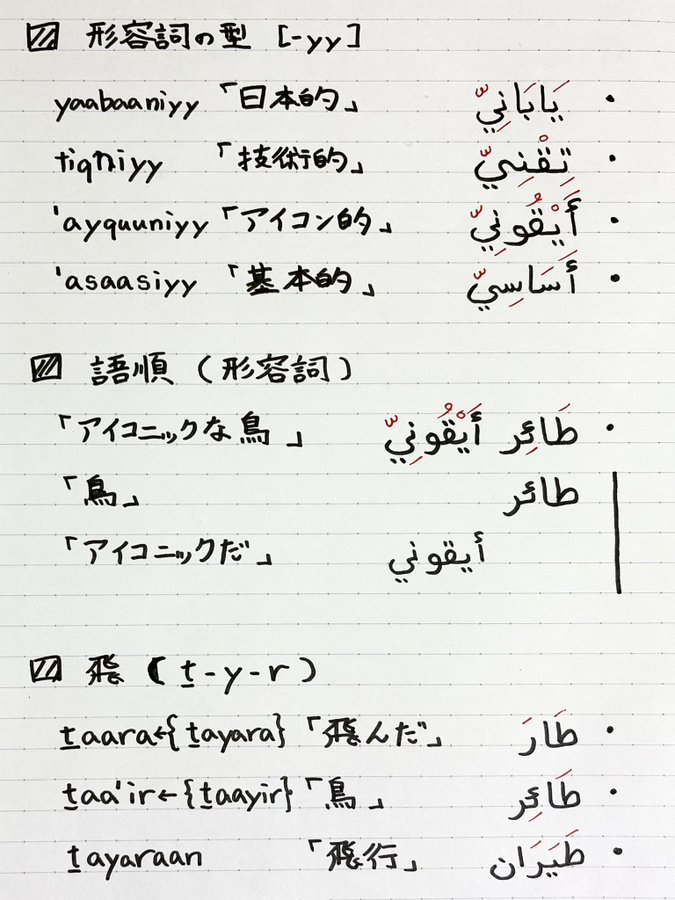 形容詞の型 [-yy]
yaabaaniyy 「日本的」 يَابَانِيّ •
tiqniyy 「技術的」 تِقْنِيّ •
'ayquuniyy 「アイコン的」 أَيْقُونِيّ •
'asaasiyy 「基本的」 أَسَاسِيّ •
語順 (形容詞)
「アイコニックな鳥」 طَائِر أَيْقُونِيّ •
「鳥」 طائر
「アイコニックだ」 أيقوني
飛 (ṯ-y-r)
ṯaara←{ṯayara} 「飛んだ」 طَارَ •
ṯaa'ir←{ṯaayir} 「鳥」 طَائِر •
ṯayaraan 「飛行」 طَيَرَان •